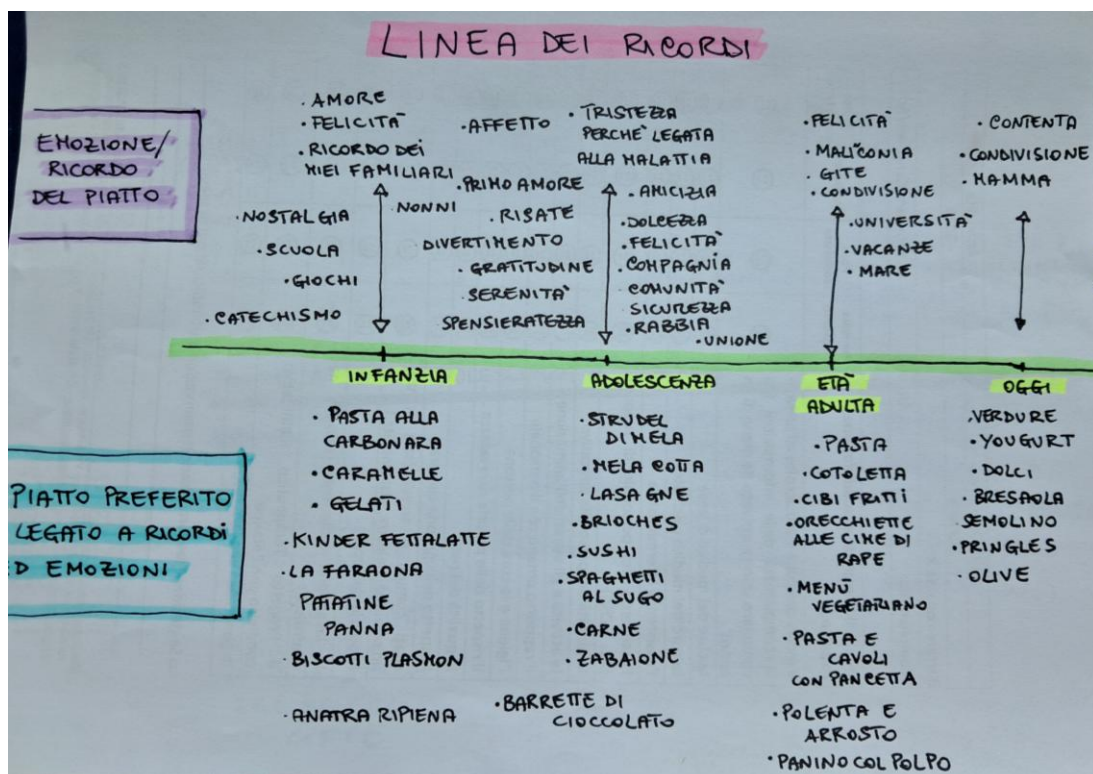 LINEA DEI RICORDI
EMOZIONE/
RICORDO
DEL PIATTO
· AMORE
· FELICITÀ
· RICORDO DEI
MIEI FAMILIARI
· NONNI
· NOSTALGIA
· SCUOLA
· GIOCHI
· CATECHISMO
· AFFETTO
· PRIMO AMORE
· RISATE
DIVERTIMENTO
· GRATITUDINE
· SERENITÀ
SPENSIERATEZZA
· TRISTEZZA
PERCHÈ LEGATA
ALLA MALATTIA
· AMICIZIA
· DOLCEZZA
· FELICITÀ
· COMPAGNIA
COMUNITÀ
SICUREZZA
· RABBIA
· UNIONE
· FELICITÀ
· MALICONIA
· GITE
· CONDIVISIONE
· UNIVERSITÀ
· VACANZE
· MARE
· CONTENTA
· CONDIVISIONE
· MAMMA
INFANZIA
ADOLESCENZA
ETÀ
ADULTA
OGGI
PIATTO PREFERITO
LEGATO A RICORDI
ED EMOZIONI
· PASTA ALLA
CARBONARA
· CARAMELLE
· GELATI
· KINDER FETTALATTE
· LA FARAONA
PATATINE
PANNA
· BISCOTTI PLASMON
· ANATRA RIPIENA
· STRUDEL
DI MELA
· MELA COTTA
· LASAGNE
· BRIOCHES
· SUSHI
· SPAGHETTI
AL SUGO
· CARNE
· ZABAIONE
· BARRETTE DI
CIOCCOLATO
· PASTA
· COTOLETTA
· CIBI FRITTI
· ORECCHIETTE
ALLE CIME DI
RAPE
· MENÙ
VEGETARIANO
· PASTA E
CAVOLI
CON PANCETTA
· POLENTA E
ARROSTO
· PANINO COL POLPO
· VERDURE
· YOUGURT
· DOLCI
· BRESAOLA
SEMOLINO
· PRINGLES
· OLIVE